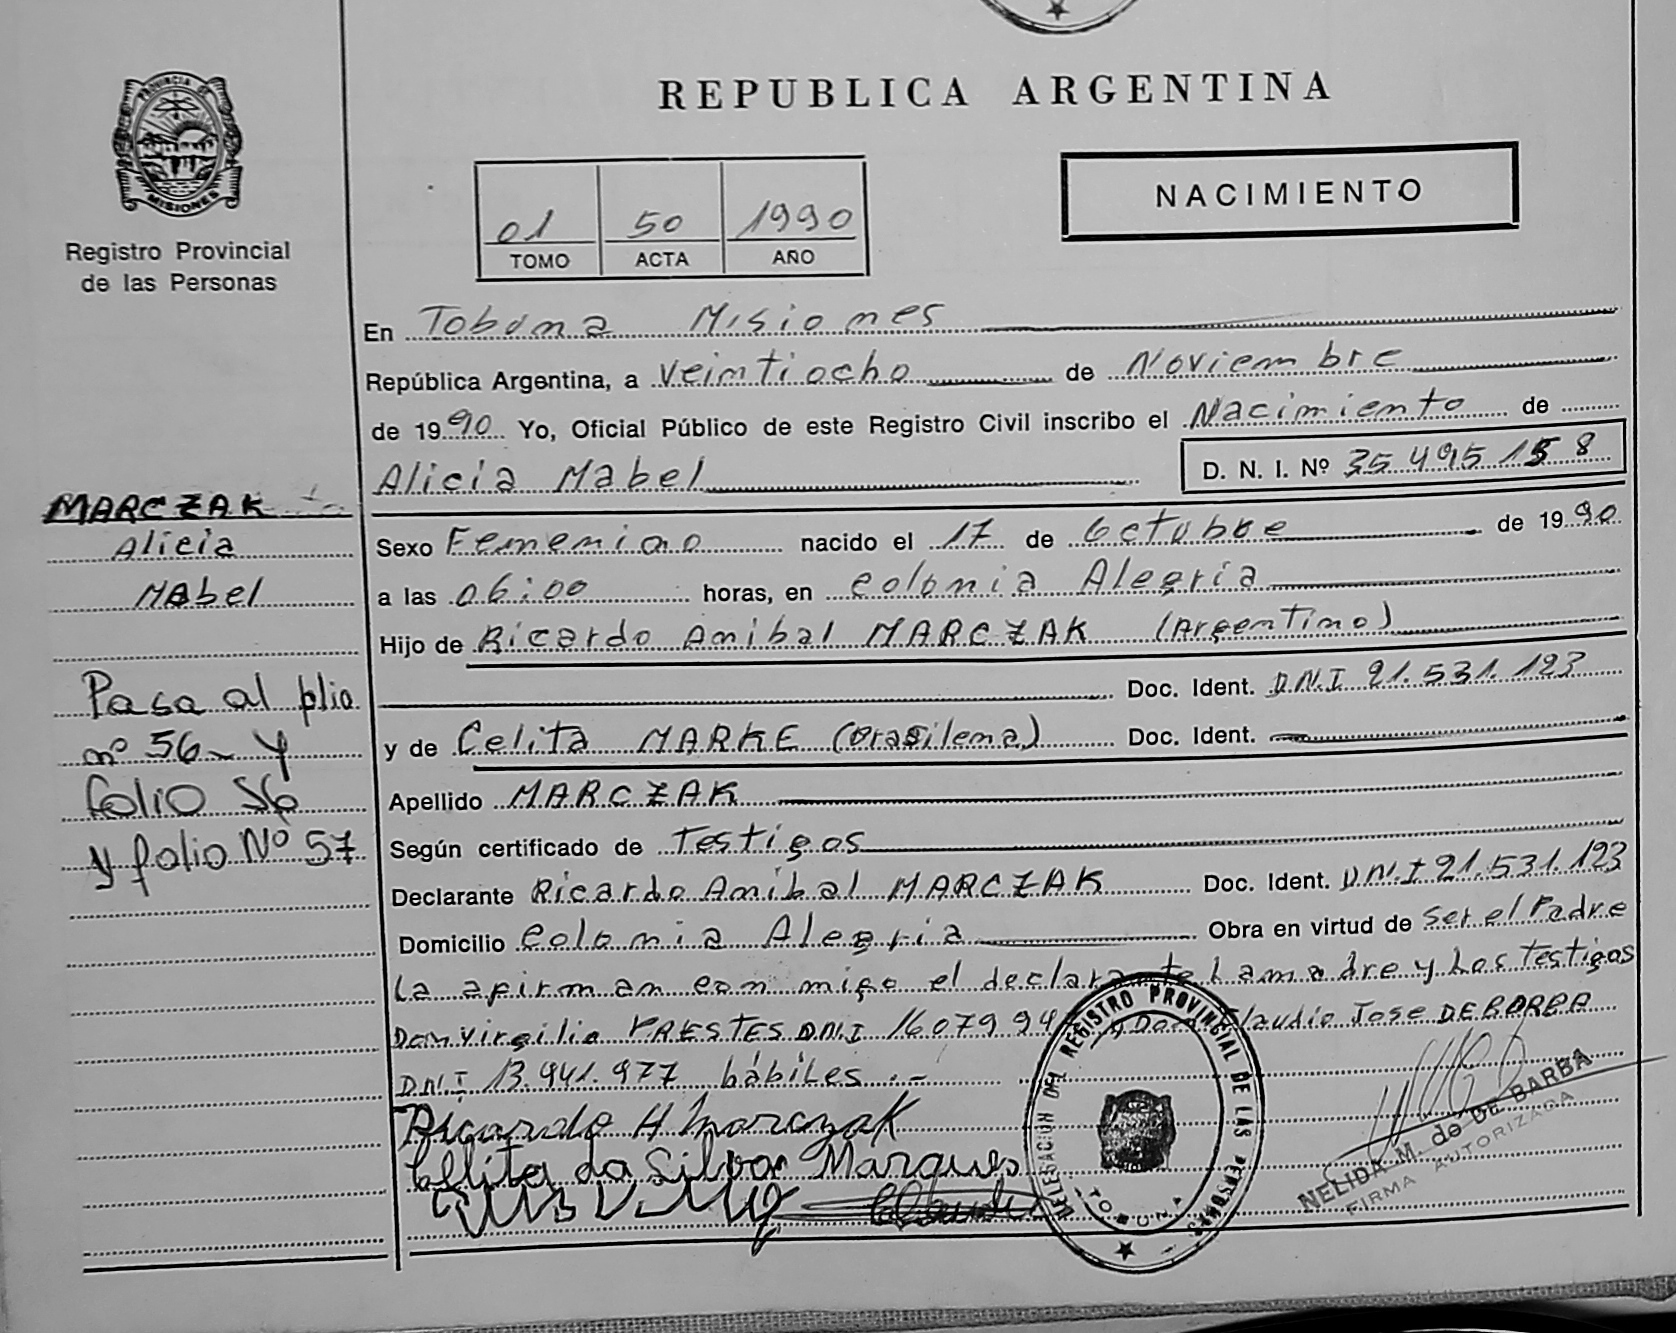 REPUBLICA ARGENTINA
PROVINCIA DE
MISIONES
Registro Provincial
de las Personas
NACIMIENTO
01 50 1990
TOMO ACTA AÑO
En Tobuna Misiones
República Argentina, a veintiocho de Noviembre
de 1990 Yo, Oficial Público de este Registro Civil inscribo el Nacimiento de
Alicia Mabel D. N. I. Nº 35.495.158
MARCZAK
Alicia
Mabel
Sexo Femenino nacido el 17 de Octubre de 1990
a las 06:00 horas, en Colonia Alegria
Hijo de Ricardo Anibal MARCZAK (Argentino)
Doc. Ident. D.N.I 21.531.123
y de Celita MARKE (brasilena) Doc. Ident.
Apellido MARCZAK
Según certificado de Testigos
Declarante Ricardo Anibal MARCZAK Doc. Ident. D.N.I 21.531.123
Domicilio Colonia Alegria Obra en virtud de Ser el Padre
La afirman con migo el declarante La madre y Los Testigos
Don Virgilio PRESTES D.N.I 16.079.94 y Don Claudio Jose DE BORBA
D.N.I 13.941.977 hábiles.-
Pasa al folio
nº 56 y
folio 56
y folio Nº 57
Ricardo A Marczak
Cellita da Silva Marques
DELEGACION DEL REGISTRO PROVINCIAL DE LAS PERSONAS
TOBUNA
NELIDA M. de DE BARBA
FIRMA AUTORIZADA